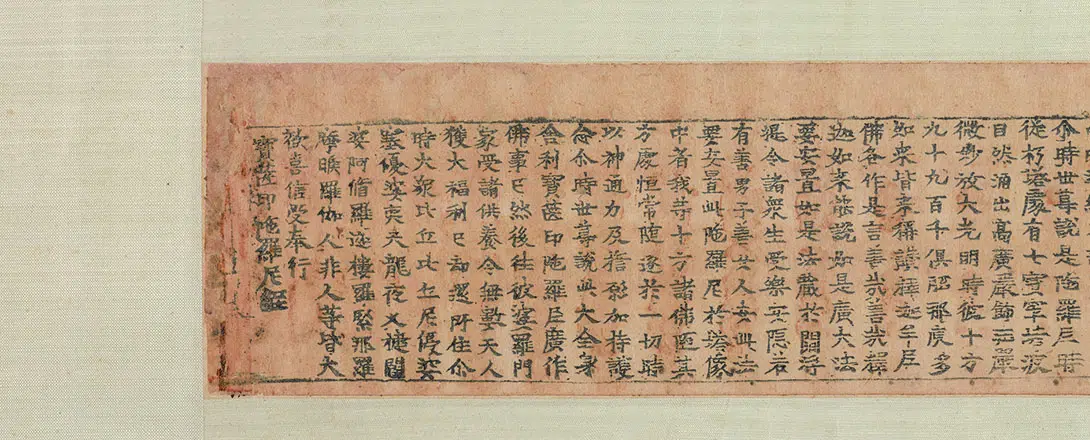 尒時世尊說是陁羅尼時
從朽塔處有七寶窣堵波
自然涌出高廣嚴飾莊嚴
微妙放大光明時彼十方
九十九百千俱胝那庾多
如來皆來稱讚釋迦牟尼
佛各作是言善哉善哉釋
迦如来能說如是廣大法
要安置如是法藏於閻浮
提令諸衆生受樂安隱若
有善男子善女人安此法
要安置此陁羅尼於塔像
中者我等十方諸佛隨其
方處恒常隨逐於一切時
以神通力及誓願加持護
念尒時世尊說此大全身
舍利寶篋印陁羅尼廣作
佛事已然後往彼婆羅門
家受諸供養令無數天人
獲大福利已却還所住尒
時大衆比丘比丘尼優婆
塞優婆夷天龍夜叉犍闥
婆阿脩羅迦樓羅緊那羅
摩睺羅伽人非人等皆大
歡喜信受奉行
寶篋印陁羅尼經